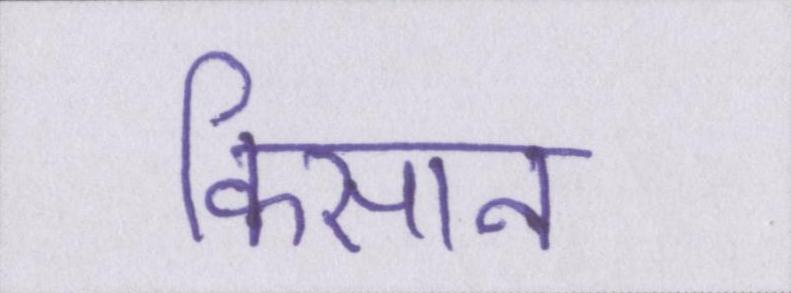 किसान